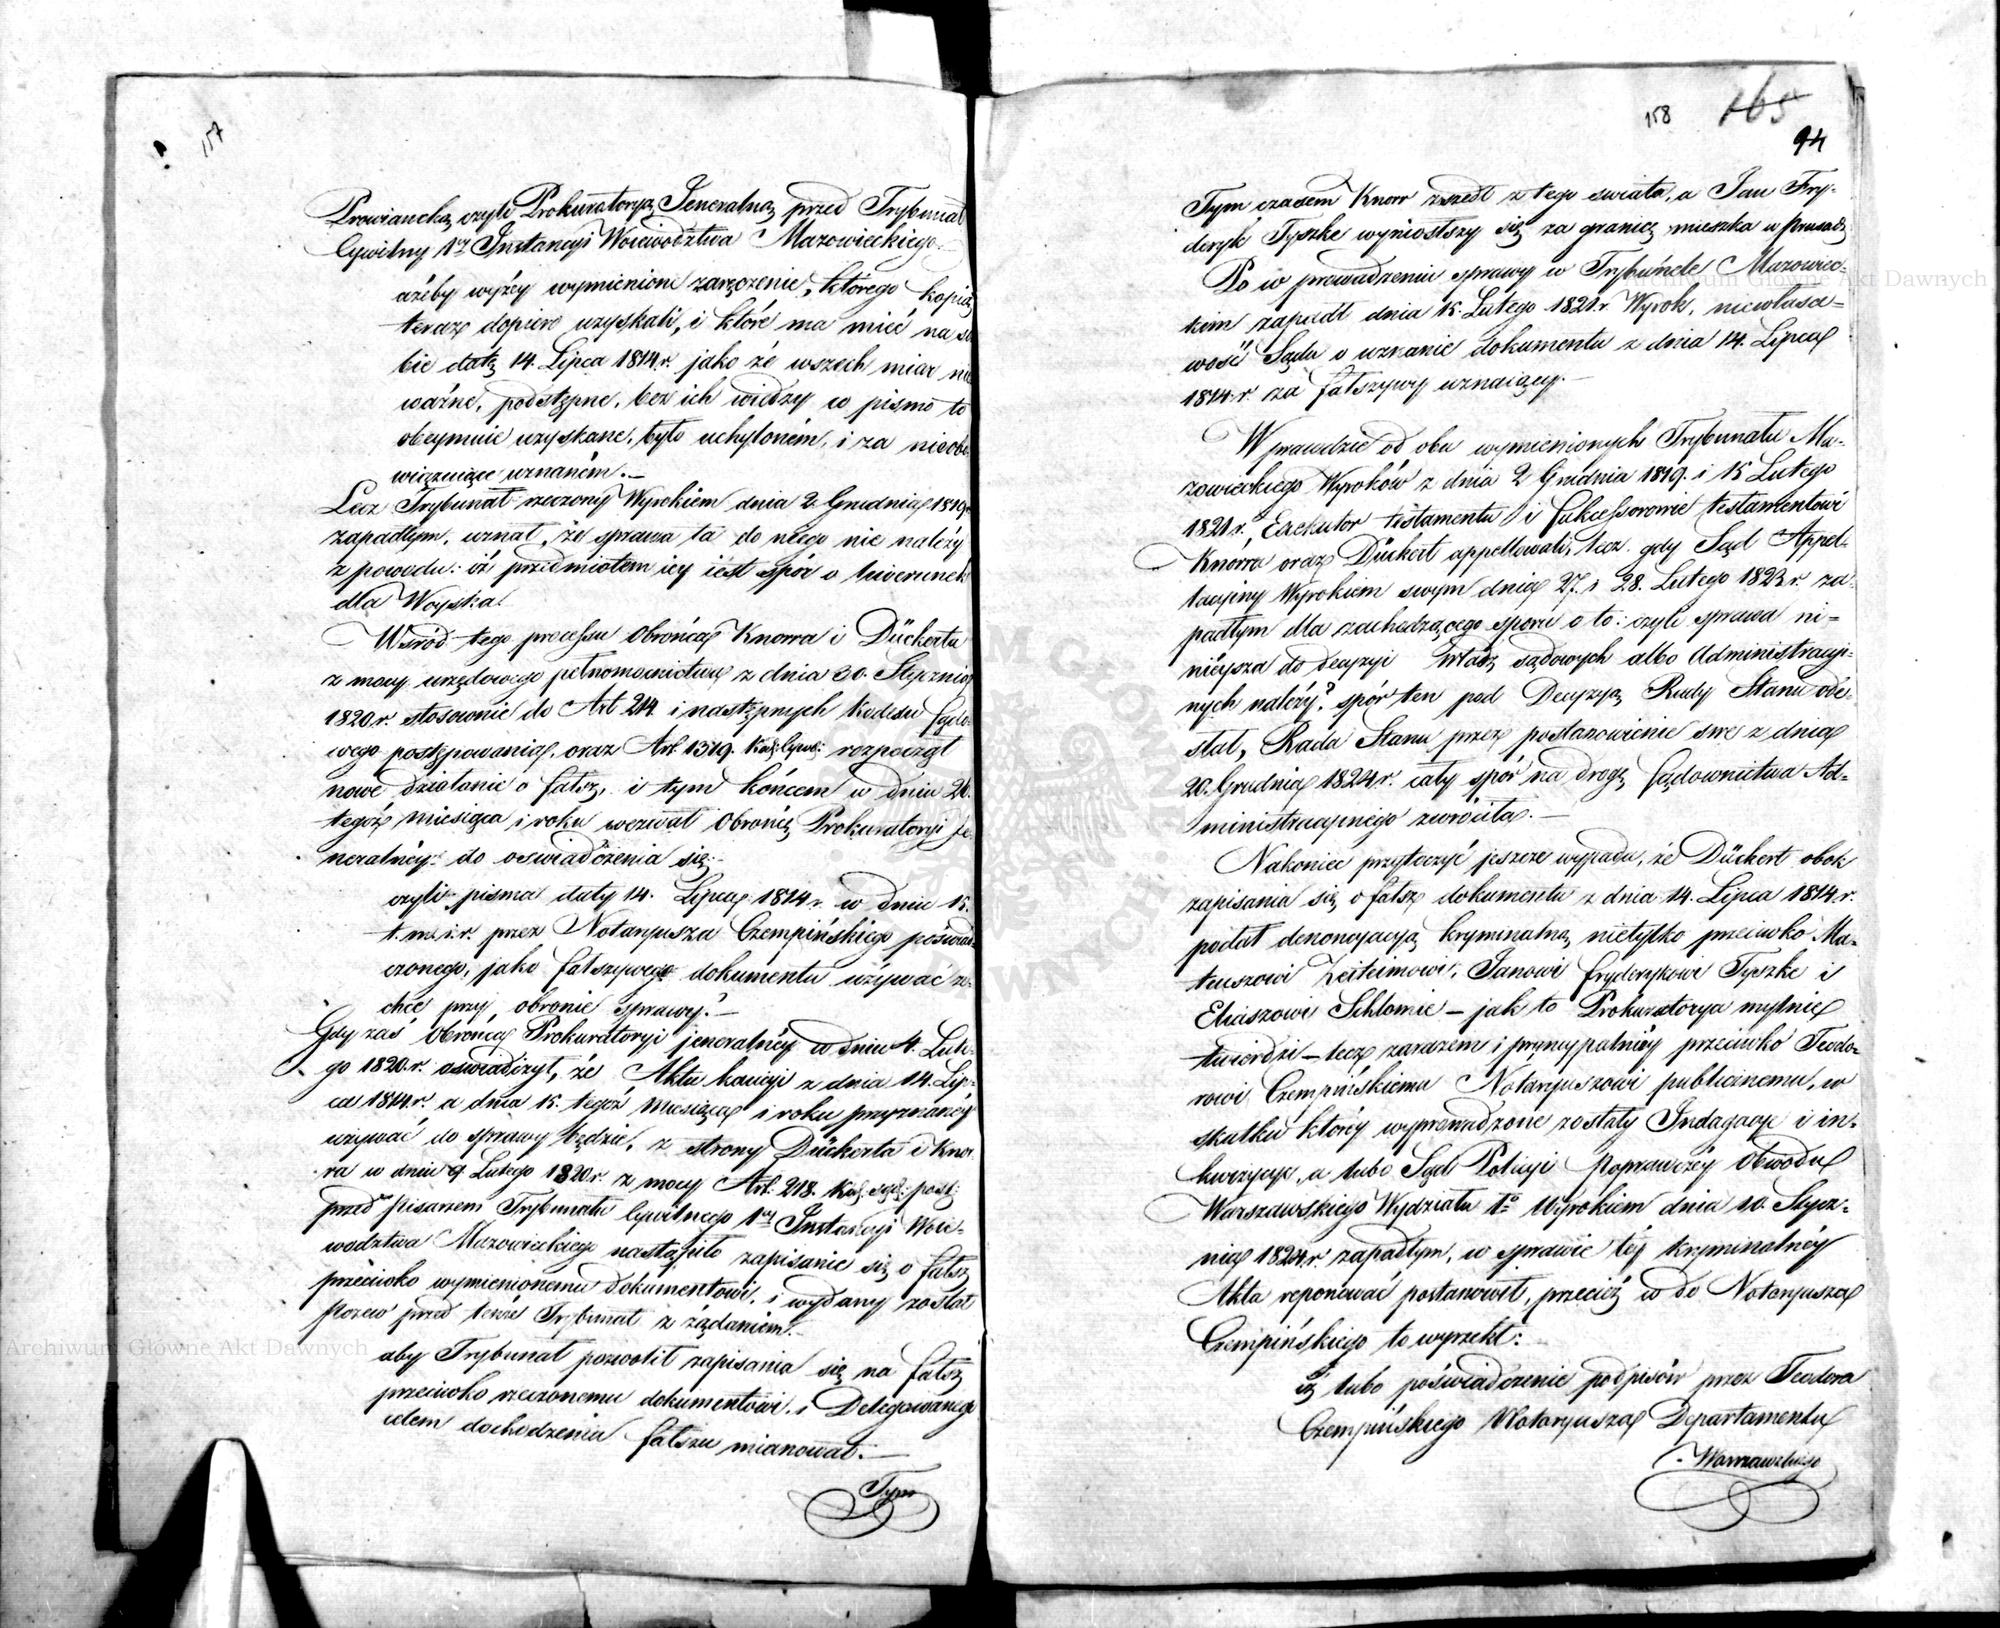 157
Prowiancką czyli Prokuratoryą Jeneralną przed Trybunał
Cywilny 1ey Instancyi Woiewództwa Mazowieckiego.
ażeby wyżey wymienione zaręczenie, którego kopią
teraz dopiero uzyskali, i które ma mieć na so
bie datę 14. Lipca 1814 r. jako ze wszech miar nie
ważne, podstępne, bez ich wiedzy w pismo to
obeymuie uzyskane, było uchylonem, i za nieobo
wiązuiące uznanem.—
Lecz Trybunał rzeczony Wyrokiem dnia 2 Grudnia 1819.
zapadłym, uznał, że sprawa ta do niego nie należy
z powodu: iż przedmiotem iey iest spór o liwerunek
dla Woyska.
Wśród tego processu Obrońca Knorra i Dückerta
z mocy urzędowego pełnomocnictwa z dnia 30. Stycznia
1820 r. stosownie do Art 214. i następnych Kodexu Sądo-
wego postępowania, oraz Art. 1319. Kod: Cywil: rozpoczął
nowe działanie o fałsz, i tym końcem w dniu 26.
tegoż miesiąca i roku wezwał Obrońcę Prokuratoryi Je-
neralnéy: do oswiadczenia się:
czyli pisma daty 14. Lipca 1814 r. w dniu 15.
t. m. i. r. przez Notaryusza Czempińskiego poświad-
czonego, jako fałszywego dokumentu używać ze-
chce przy obronie sprawy?—
Gdy zaś Obrońca Prokuratoryi jeneralnéy w dniu 4. Lute-
go 1820. r. oswiadczył, że Aktu kaucyi z dnia 14. Lip-
ca 1814 r. a dnia 15. tegoż Miesiąca i roku przyznanéy
używać do sprawy będzie, z strony Dückerta i Knor-
ra w dniu 9 Lutego 1820 r. z mocy Art: 218. Kod: sąd: post:
przed Pisarzem Trybunału Cywilnego 1ey Instancyi Woie-
wodztwa Mazowieckiego nastąpiło zapisanie się o fałsz
przeciwko wymienionemu dokumentowi, i wydany został
Pozew przed tenże Trybunał z żądaniem:—
aby Trybunał pozwolił zapisania się na fałsz
przeciwko rzeczonemu dokumentowi, i Delegowanego
celem dochodzenia fałszu mianował:—
Tym
158 165
94
Tym czasem Knorr zszedł z tego swiata, a Jan Fry-
deryk Tyszke wyniosłszy się za granicę mieszka w Prusach
Po w prowadzeniu sprawy w Trybunale Mazowiec-
kim zapadł dnia 15. Lutego 1821. r. Wyrok, niewłasci-
wość Sądu o uznanie dokumentu z dnia 14. Lipca
1814. r. za fałszywy uznaiący.—
Wprawdzie od obu wymienionych Trybunału Ma-
zowieckiego Wyroków z dnia 2 Grudnia 1819. i 15 Lutego
1821 r. Exekutor testamentu i Sukcessorowie testamentowi
Knorra oraz Dückert appellowali, lecz gdy Sąd Appel-
lacyiny Wyrokiem swym dnia 27. i 28. Lutego 1823 r. za-
padłym dla zachodzącego sporu o to: czyli sprawa ni-
nieysza do decyzyi Władz sądowych albo Administracyi-
nych należy? spór ten pod Decyzyą Rady Stanu ode-
słał, Rada Stanu przez postanowienie swe z dnia
20. Grudnia 1824 r. cały spór na drogę Sądownictwa Ad-
ministracyinego zwróciła.—
Nakoniec przytoczyć jeszcze wypada, że Dückert obok
zapisania się o fałsz dokumentu z dnia 14. Lipca 1814. r.
podał denoncyacyą kryminalną nietylko przeciwko Ma-
teuszowi, Janowi Fryderykowi Tyszke i
Eliaszowi Schlomie — jak to Prokuratorya mylnie
twierdzi — lecz zarazem i pryncypalniéy przeciwko Teodo-
rowi Czempińskiemu Notaryuszowi publicznemu, w
skutku któréy wyprowadzone zostały Indagacye i in-
kwizycye, a lubo Sąd Policyi Poprawczéy Obwodu
Warszawskiego Wydziału 1o Wyrokiem dnia 10. Stycz-
nia 1824 r. zapadłym, w sprawie téy kryminalnéy
Akta reponować postanowił, przecież w do Notaryusza
Czempińskiego to wyrzekł:
iż lubo poświadczenie podpisów przez Teodora
Czempińskiego Notaryusza Departamentu
Warszawskiego
Archiwum Główne Akt Dawnych
Archiwum Główne Akt Dawnych